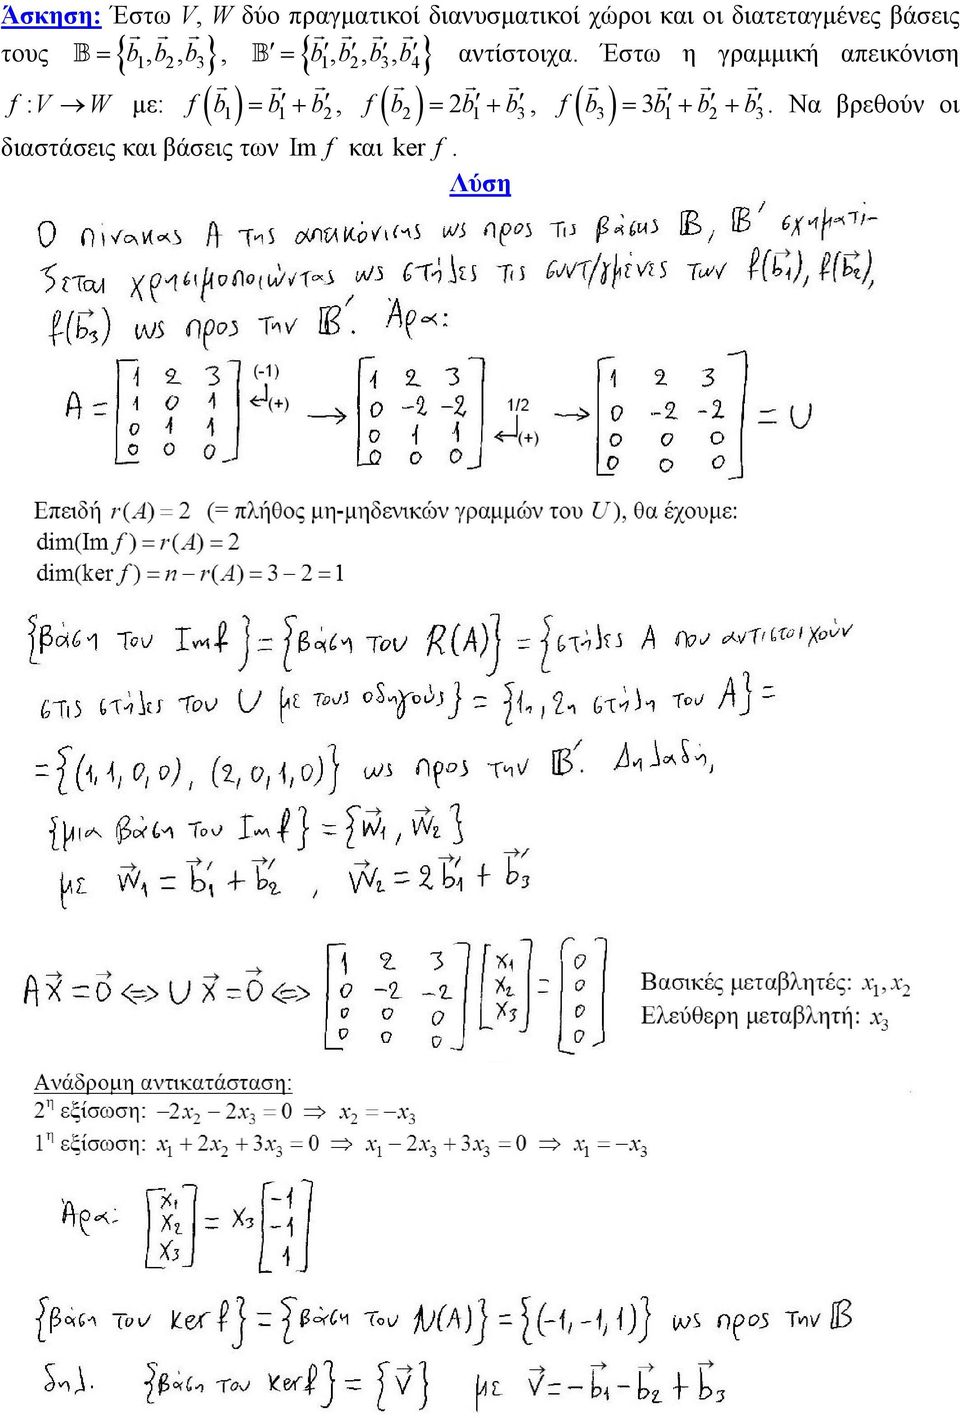 Άσκηση: Έστω V, W δύο πραγματικοί διανυσματικοί χώροι και οι διατεταγμένες βάσεις
τους 𝔹 = {b⃗₁, b⃗₂, b⃗₃}, 𝔹′ = {b⃗₁′, b⃗₂′, b⃗₃′, b⃗₄′} αντίστοιχα. Έστω η γραμμική απεικόνιση
f : V → W με: f(b⃗₁) = b⃗₁′ + b⃗₂′, f(b⃗₂) = 2b⃗₁′ + b⃗₃′, f(b⃗₃) = 3b⃗₁′ + b⃗₂′ + b⃗₃′. Να βρεθούν οι
διαστάσεις και βάσεις των Im f και ker f.
Λύση
Ο πίνακας A της απεικόνισης ως προς τις βάσεις 𝔹, 𝔹′ σχηματί-
ζεται χρησιμοποιώντας ως στήλες τις συντ/γμένες των f(b⃗₁), f(b⃗₂),
f(b⃗₃) ως προς την 𝔹′. Άρα:
A = [1 2 3; 1 0 1; 0 1 1; 0 0 0] (-1) (+) → [1 2 3; 0 -2 -2; 0 1 1; 0 0 0] 1/2 (+) → [1 2 3; 0 -2 -2; 0 0 0; 0 0 0] = U
Επειδή r(A) = 2 (= πλήθος μη-μηδενικών γραμμών του U), θα έχουμε:
dim(Im f) = r(A) = 2
dim(ker f) = n − r(A) = 3 − 2 = 1
{βάση του Im f} = {βάση του R(A)} = {στήλες A που αντιστοιχούν
στις στήλες του U με τους οδηγούς} = {1η, 2η στήλη του A} =
= {(1,1,0,0), (2,0,1,0)} ως προς την 𝔹′. Δηλαδή,
{μια βάση του Im f} = {w⃗₁, w⃗₂}
με w⃗₁ = b⃗₁′ + b⃗₂′, w⃗₂ = 2b⃗₁′ + b⃗₃′
Ax⃗ = 0⃗ ⇔ Ux⃗ = 0⃗ ⇔ [1 2 3; 0 -2 -2; 0 0 0; 0 0 0] [x₁; x₂; x₃] = [0; 0; 0; 0]
Βασικές μεταβλητές: x₁, x₂
Ελεύθερη μεταβλητή: x₃
Ανάδρομη αντικατάσταση:
2η εξίσωση: −2x₂ − 2x₃ = 0 ⇒ x₂ = −x₃
1η εξίσωση: x₁ + 2x₂ + 3x₃ = 0 ⇒ x₁ − 2x₃ + 3x₃ = 0 ⇒ x₁ = −x₃
Άρα: [x₁; x₂; x₃] = x₃ [-1; -1; 1]
{βάση του ker f} = {βάση του N(A)} = {(-1,-1,1)} ως προς την 𝔹
δηλ. {βάση του ker f} = {v⃗} με v⃗ = -b⃗₁ - b⃗₂ + b⃗₃